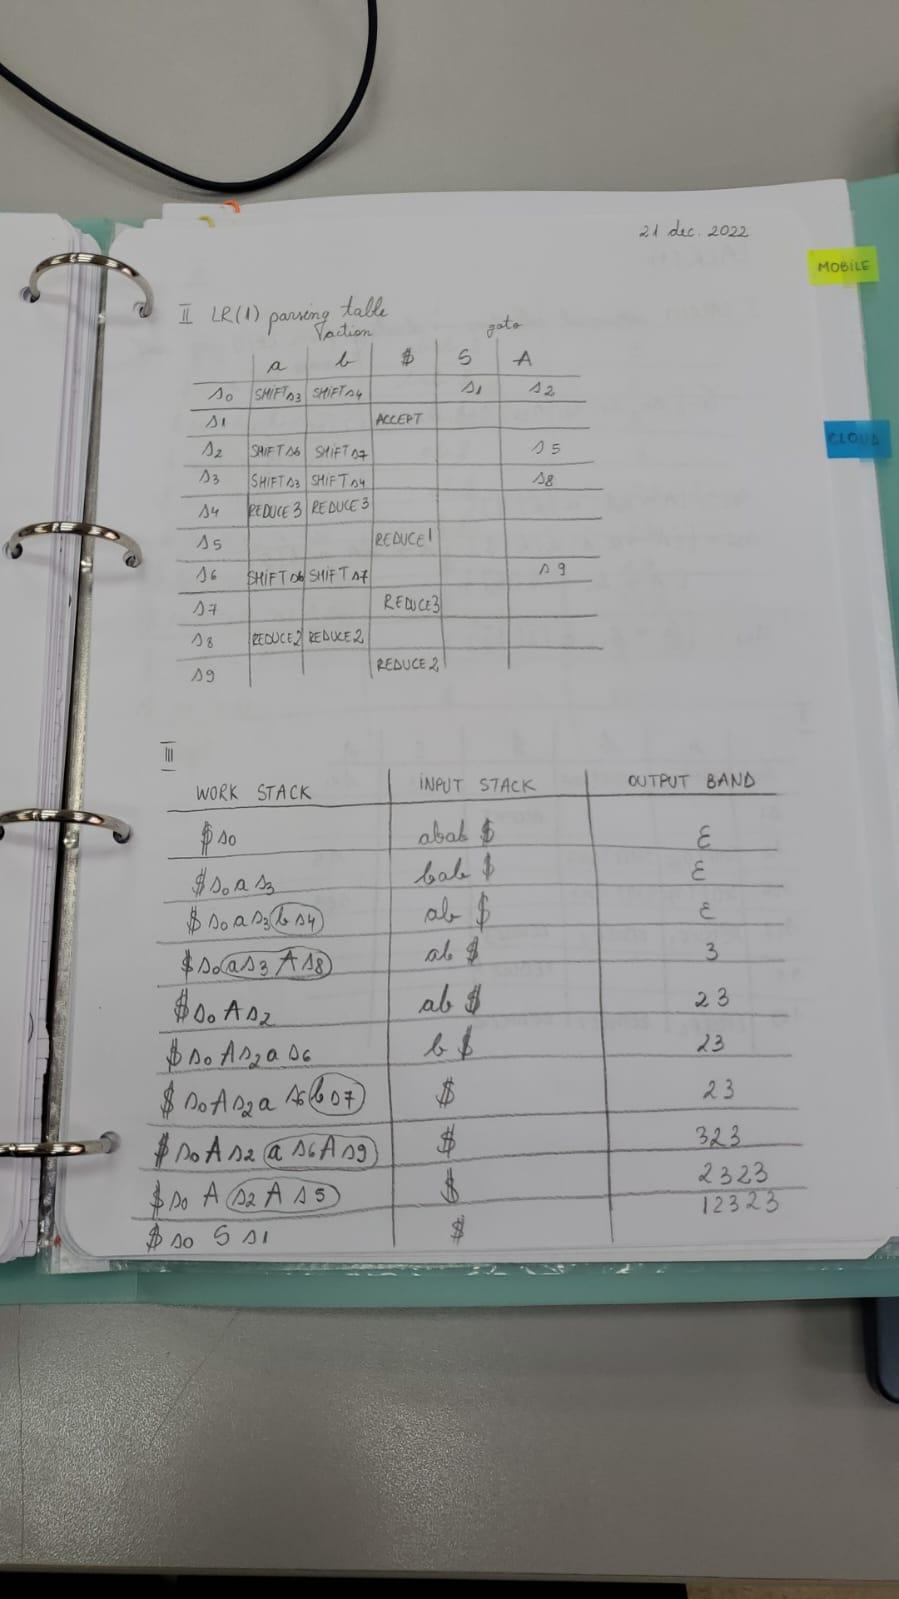 21 dec. 2022
MOBILE
II LR(1) parsing table
action goto
a b $ S A
s0 SHIFT s3 SHIFT s4 s1 s2
s1 ACCEPT
CLOUD
s2 SHIFT s6 SHIFT s7 s5
s3 SHIFT s3 SHIFT s4 s8
s4 REDUCE 3 REDUCE 3
s5 REDUCE 1
s6 SHIFT s6 SHIFT s7 s9
s7 REDUCE 3
s8 REDUCE 2 REDUCE 2
s9 REDUCE 2
III
WORK STACK INPUT STACK OUTPUT BAND
$ s0 abab $ ε
$ s0 a s3 bab $ ε
$ s0 a s3 b s4 ab $ ε
$ s0 a s3 A s8 ab $ 3
$ s0 A s2 ab $ 23
$ s0 A s2 a s6 b $ 23
$ s0 A s2 a s6 b s7 $ 23
$ s0 A s2 a s6 A s9 $ 323
$ s0 A s2 A s5 $ 2323
$ s0 S s1 $ 12323